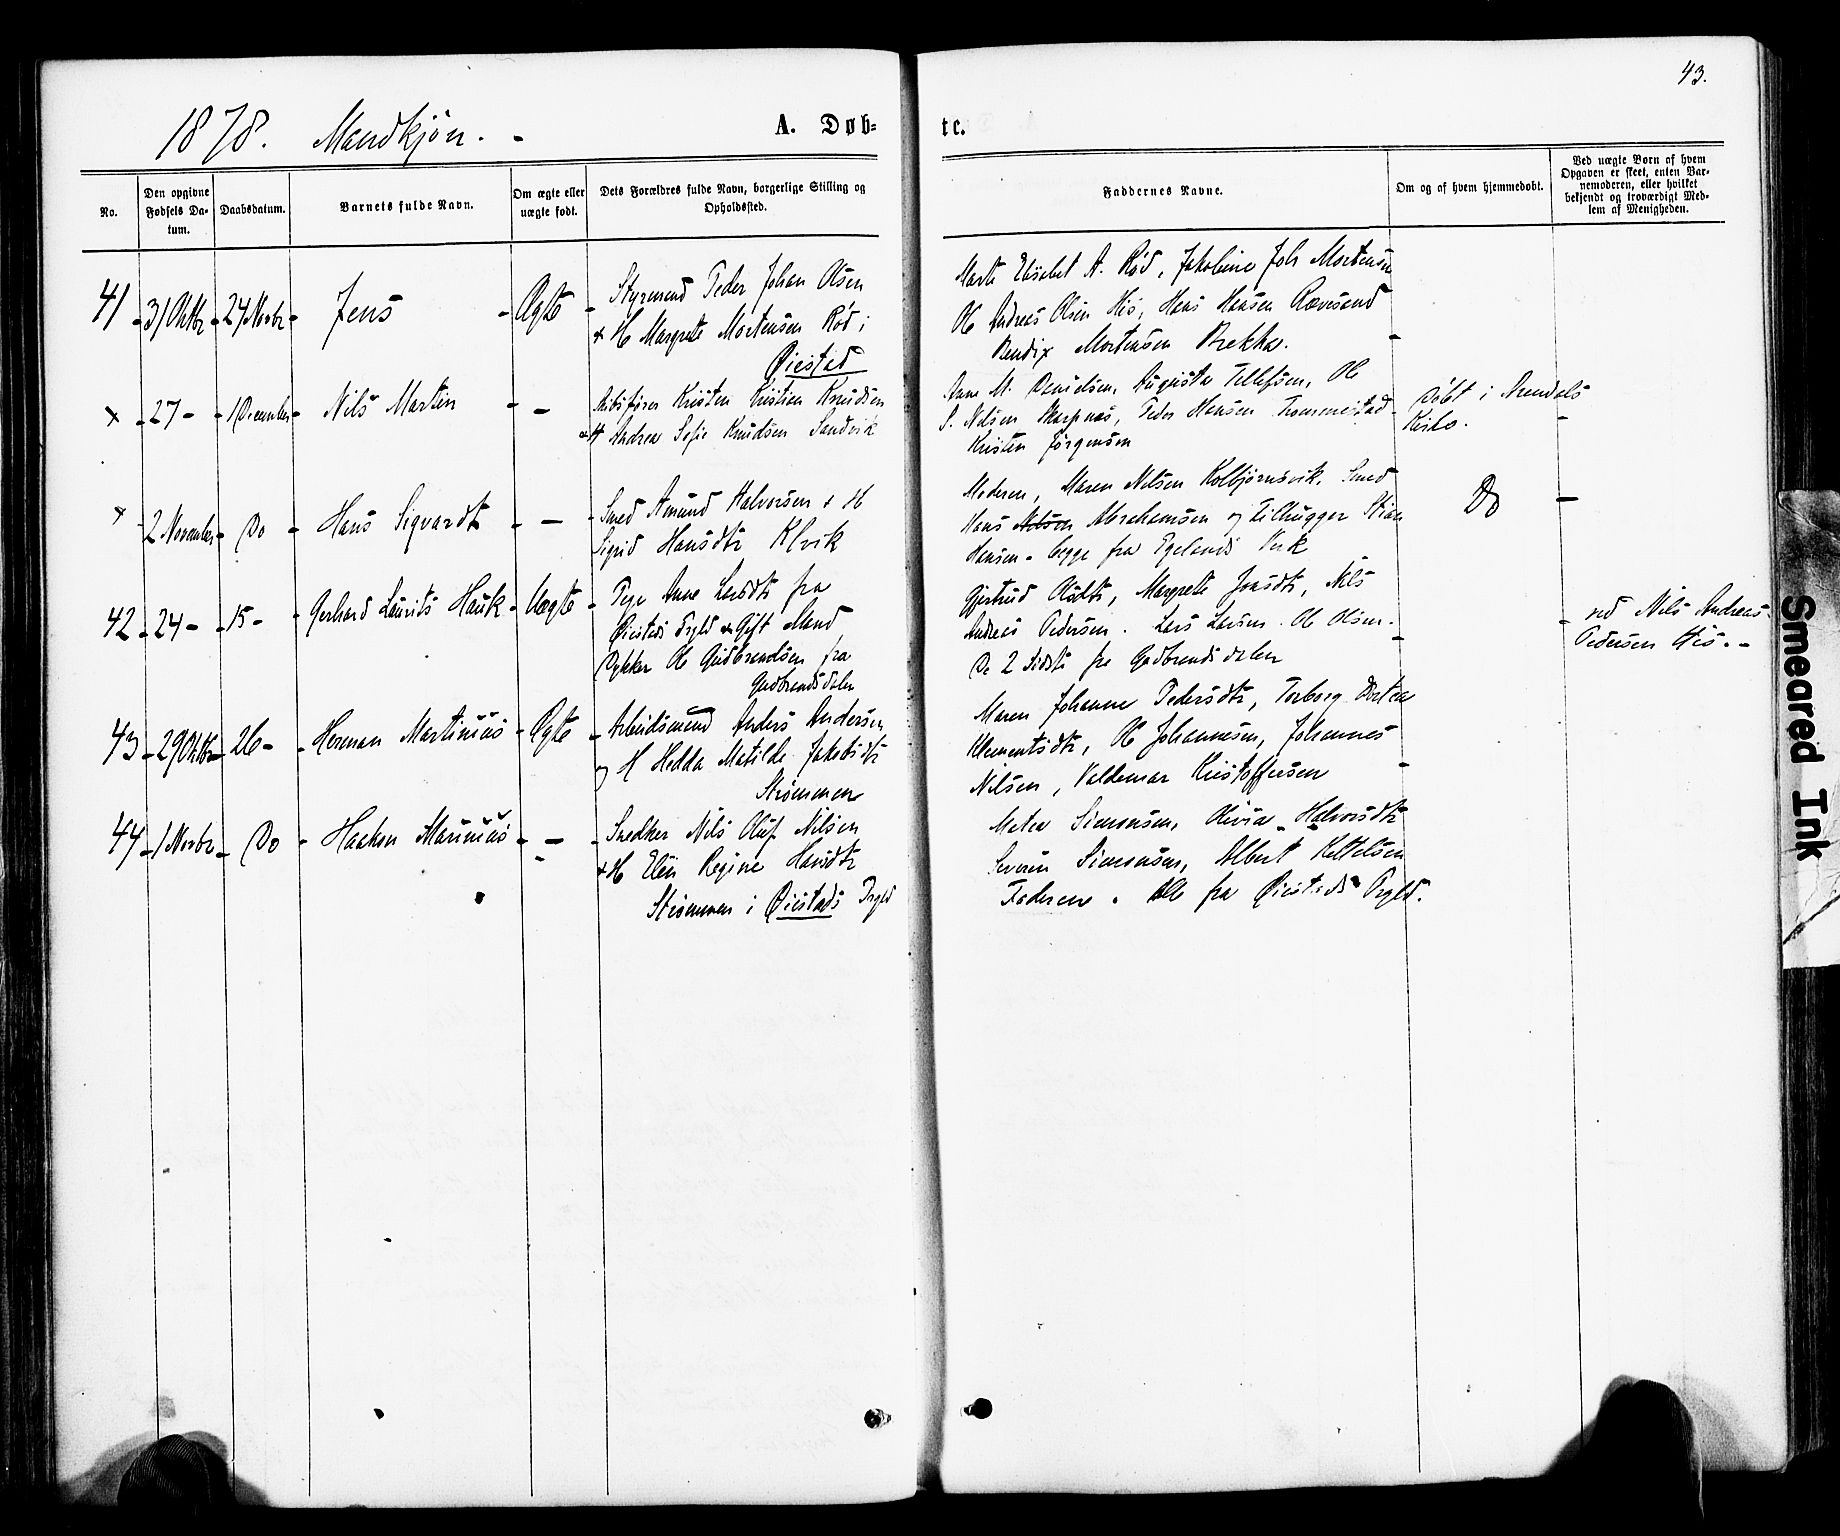 43.
1878. Mandkjøn. -
A. Døb-
te.
No.
Den opgivne Fødsels Da-tum.
Daabsdatum.
Barnets fulde Navn.
Om ægte eller uægte født.
Dets Forældres fulde Navn, borgerlige Stilling og Opholdssted.
Faddernes Navne.
Om og af hvem hjemmedøbt.
Ved uægte Born af hvem Opgaven er skeet, enten Bar-nemoderen, eller hvilket bekjendt og troværdigt Med-lem af Menigheden.
41 - 31 Oktbr - 24 Novbr - Jens - Ægte -
Styrmand Peder Johan Olsen
+ H Margrete Mortensen Rød i
Øiestad
Marte Elisabet A. Rød, Jakobine Joh Mortensen
Ole Andreas Olsen His, Hans Hansen Rævesand
Bendix Mortensen Brekka. -
x - 27 - - 1 December - Nils Martin - -
Kristen Kristian Knudsen
+ H Andrea Sofie Knudsen Sandvik
Anne M. Danielsen, Augusta Tellefsen, Ole
S. Nilsen Skarpnes, Peder Hansen Tromøiestad -
Kristen Jørgensen
Døbt i Arendals
Kirke. -
x 2 November - Do - Hans Sigvardt - - -
Smed Amund Halvorsen + H
Sigrid Hansdtr Klvik
Moderen, Maren Nilsen Kolbjørnsvik, Smed
Hans Nilsen Abrahamsen og Tilhugger Stian
Hansen - begge fra Egelands Verk
Do -
42 - 24 - - 15 - - Gerhard Laurits Hauk - Uægte -
Pige Anne Larsdtr fra
Øiestads Prgld & Gift Mand
Dykker Ole Gudbrandsen fra
Gudbrandsdalen
Gjertrud Olsdtr, Margrete Jonsdtr, Nils
Andreas Pedersen. Lars Larsen. Ole Olsen.
De 2 sidste fra Gudbrandsdalen -
- ved Nils Andreas
Pedersen His. -
43 - 29 Oktbr - 26 - - Herman Martinius - Ægte -
Arbeidsmand Anders Andersen
og H Hedda Matilde Jakobsdtr
Strømmen
Maren Johanne Pedersdtr, Torborg
Klementsdtr, Ole Johannesen, Johannes
Nilsen, Valdemar Kristoffersen -
44 - 1 Novbr - Do - Haakon Marinius - - -
Snedker Nils Oluf Nilsen
+ H Elen Regine Hansdtr
Strømmen i Øiestads Prgld
Metea Simonsen, Olivia Halvorsdtr
Severin Simonsen, Albert Kittelsen
Faderen. Alle fra Øiestads Prgld.
Smeared Ink